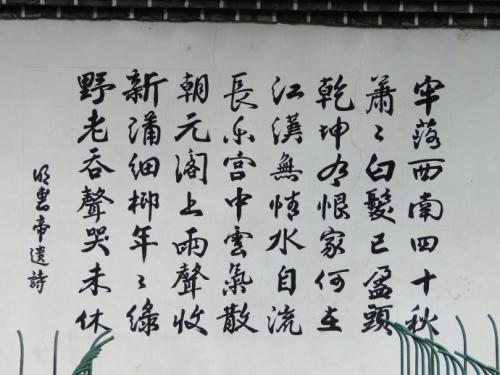 牢落西南四十秋
萧〻白髮已盈頭
乾坤有恨家何在
江漢無情水自流
長乐宫中雲氣散
朝元阁上雨聲收
新蒲細柳年〻綠
野老吞聲哭未休
明惠帝遺詩